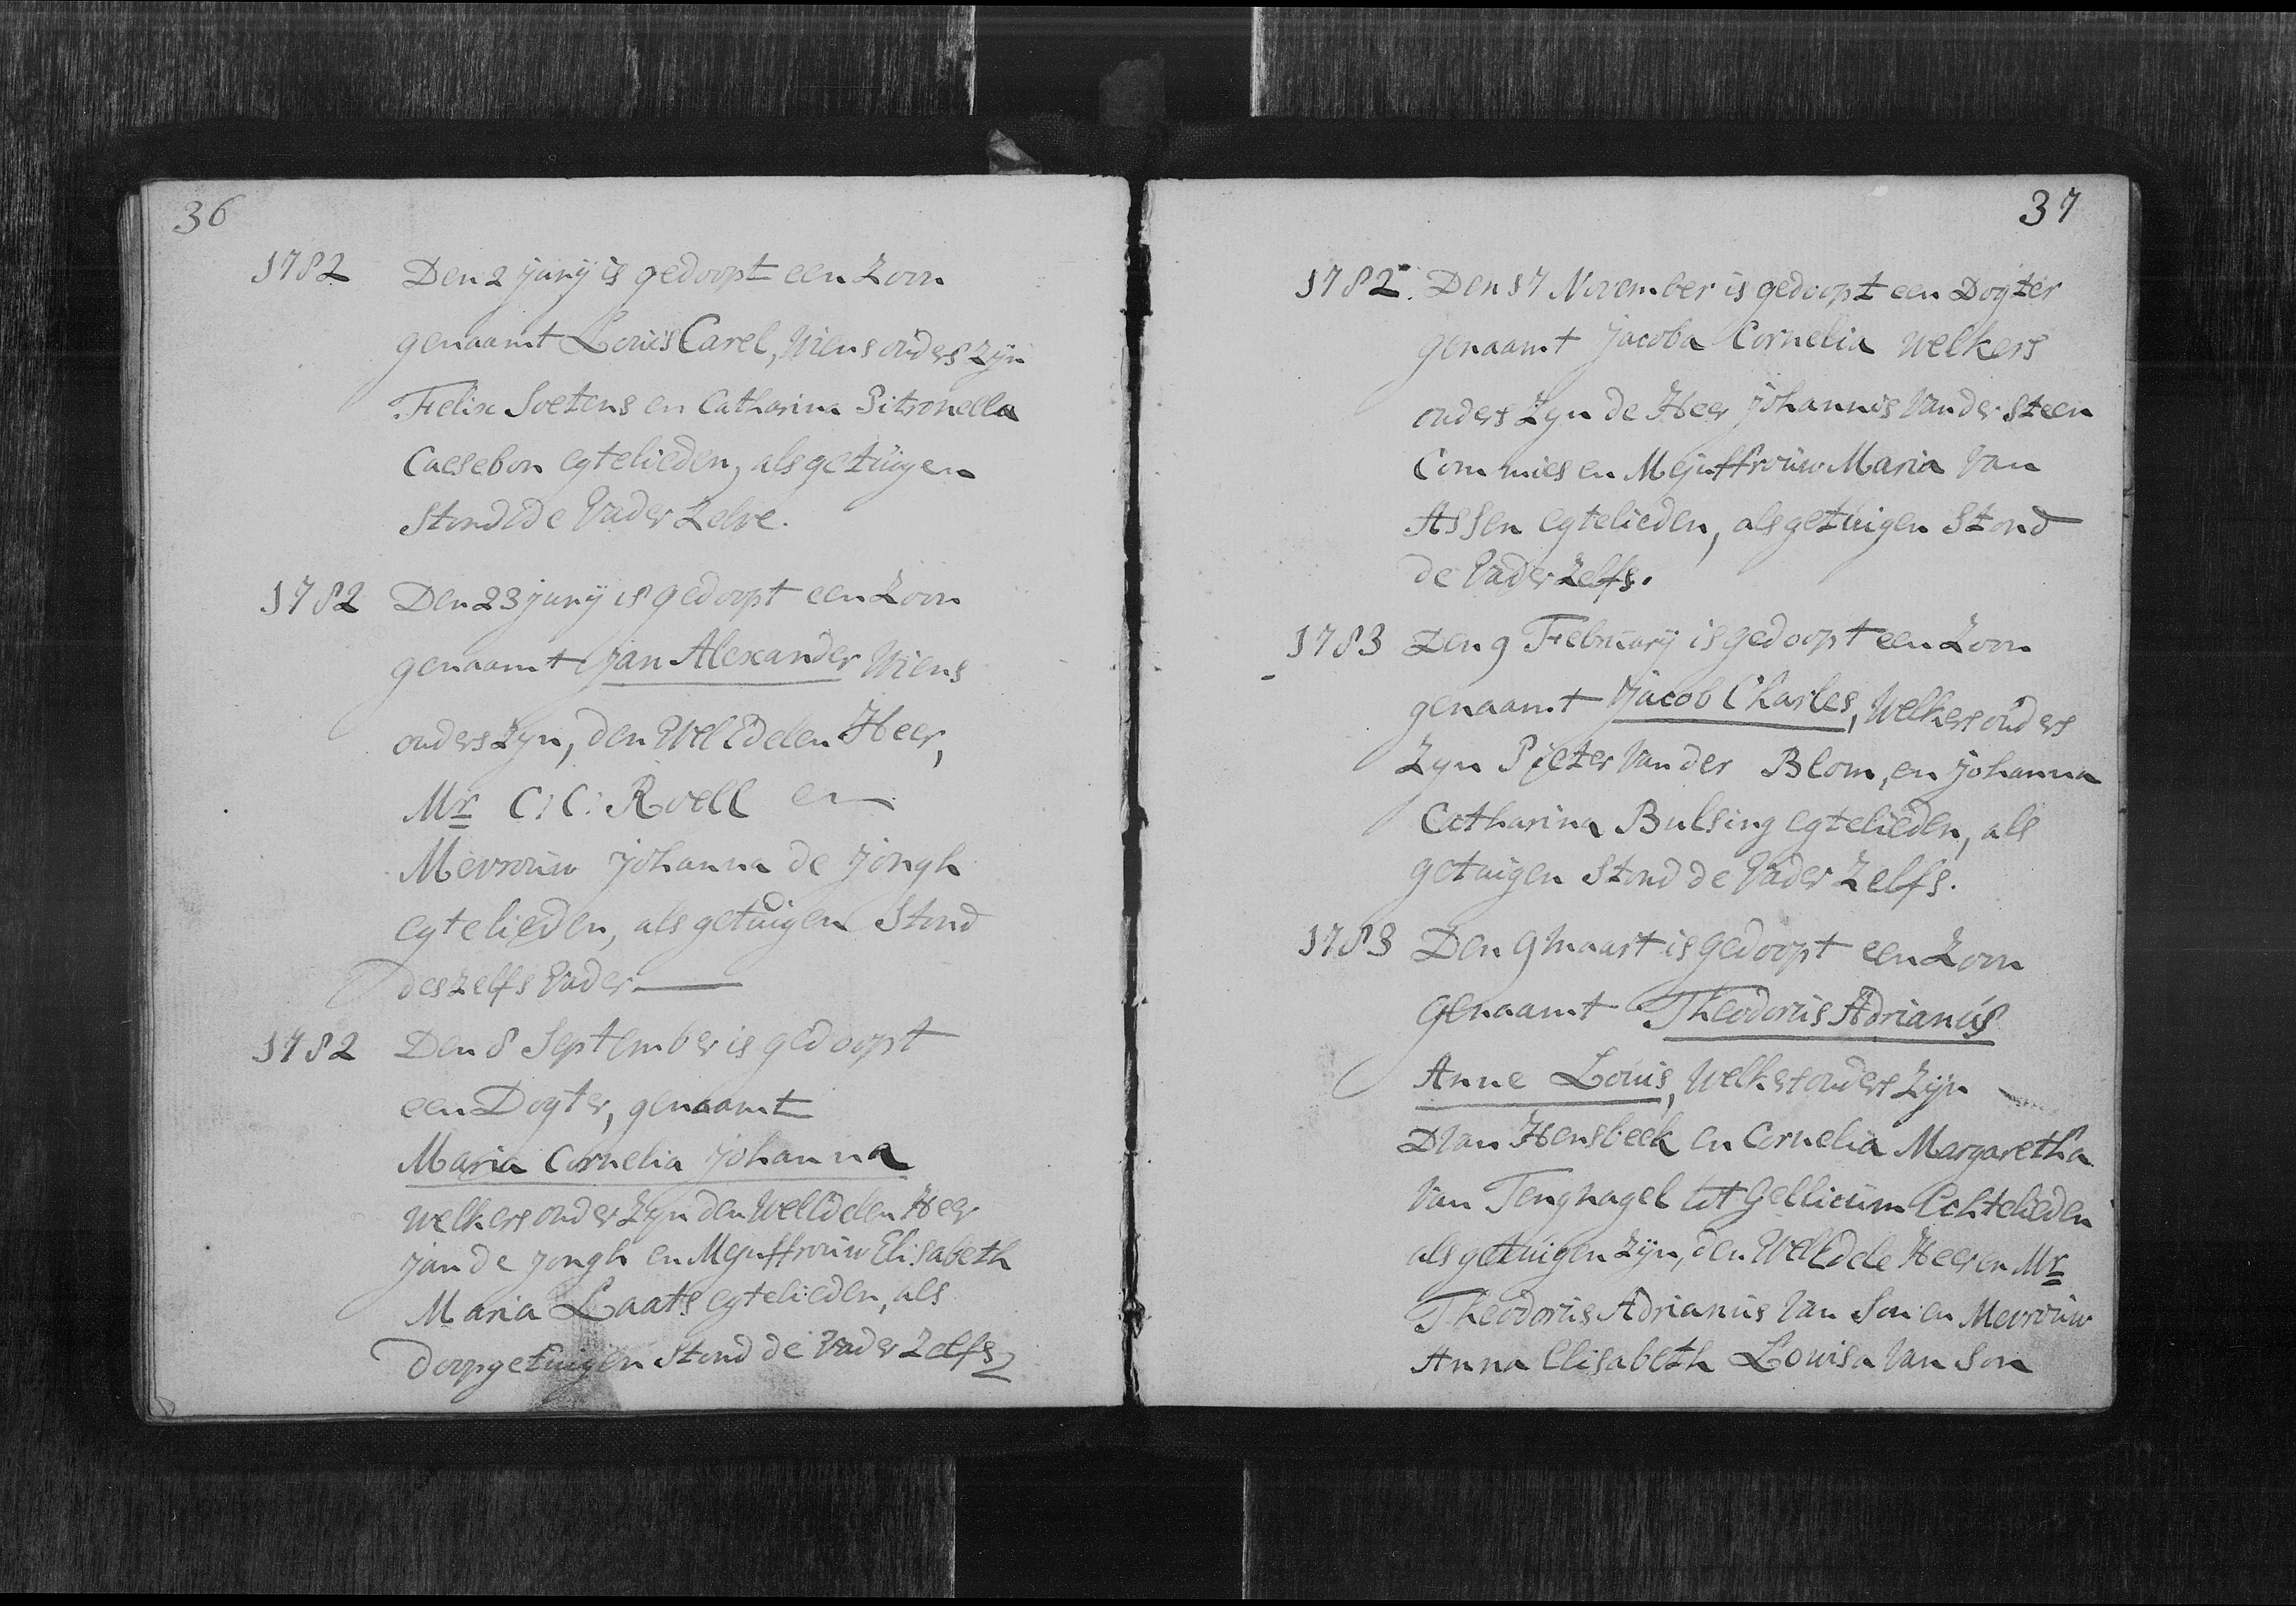 36
1782 Den 2 junij is gedoopt een Zoon
genaamt Louis Carel, Wiens ouders zijn
Felix Soetens en Catharina Pitronella
Caesebon egtelieden, als getuigen
Stond de Vader Zelve.
1782 Den 23 junij is gedoopt een Zoon
genaamt Jan Alexander Wiens
ouders Zyn, den WelEdelen Heer,
Mr C: C: Roell en
Mevrouw Johanna de Jongh
egtelieden, als getuigen Stond
deszelfs Vader
1782 Den 8 September is gedoopt
een Dogter, genaamt
Maria Cornelia Johanna
welkers ouder Zyn den WelEdelen Heer
Jan de Jongh en Mejuffrouw Elisabeth
Maria Laats egtelieden, als
doopgetuigen Stond de Vader Zelfs
37
1782. Den 17 November is gedoopt een Dogter
genaamt Jacoba Cornelia welkers
ouders Zyn de Heer Johannes Vander Steen
Commies en Mejuffrouw Maria Van
Assen egtelieden, als getuigen Stond
de Vader Zelfs.
1783 Den 9 February is gedoopt een Zoon
genaamt Jacob Charles, Welkers ouders
Zyn Pieter Vander Blom, en Johanna
Catharina Bulsing egtelieden, als
getuigen Stond de Vader Zelfs.
1783 Den 9 maart is gedoopt een Zoon
Genaamt Theodorus Adrianus
Anne Louis, Welkers ouders Zijn
D Van Hensbeek en Cornelia Margaretha
Van Tengnagel tot Gellicum Echtelieden
als getuigen zijn, den WelEdele Heer en Mr
Theodorus Adrianus Van Son en Mevrouw
Anna Elisabeth Louisa Van Son